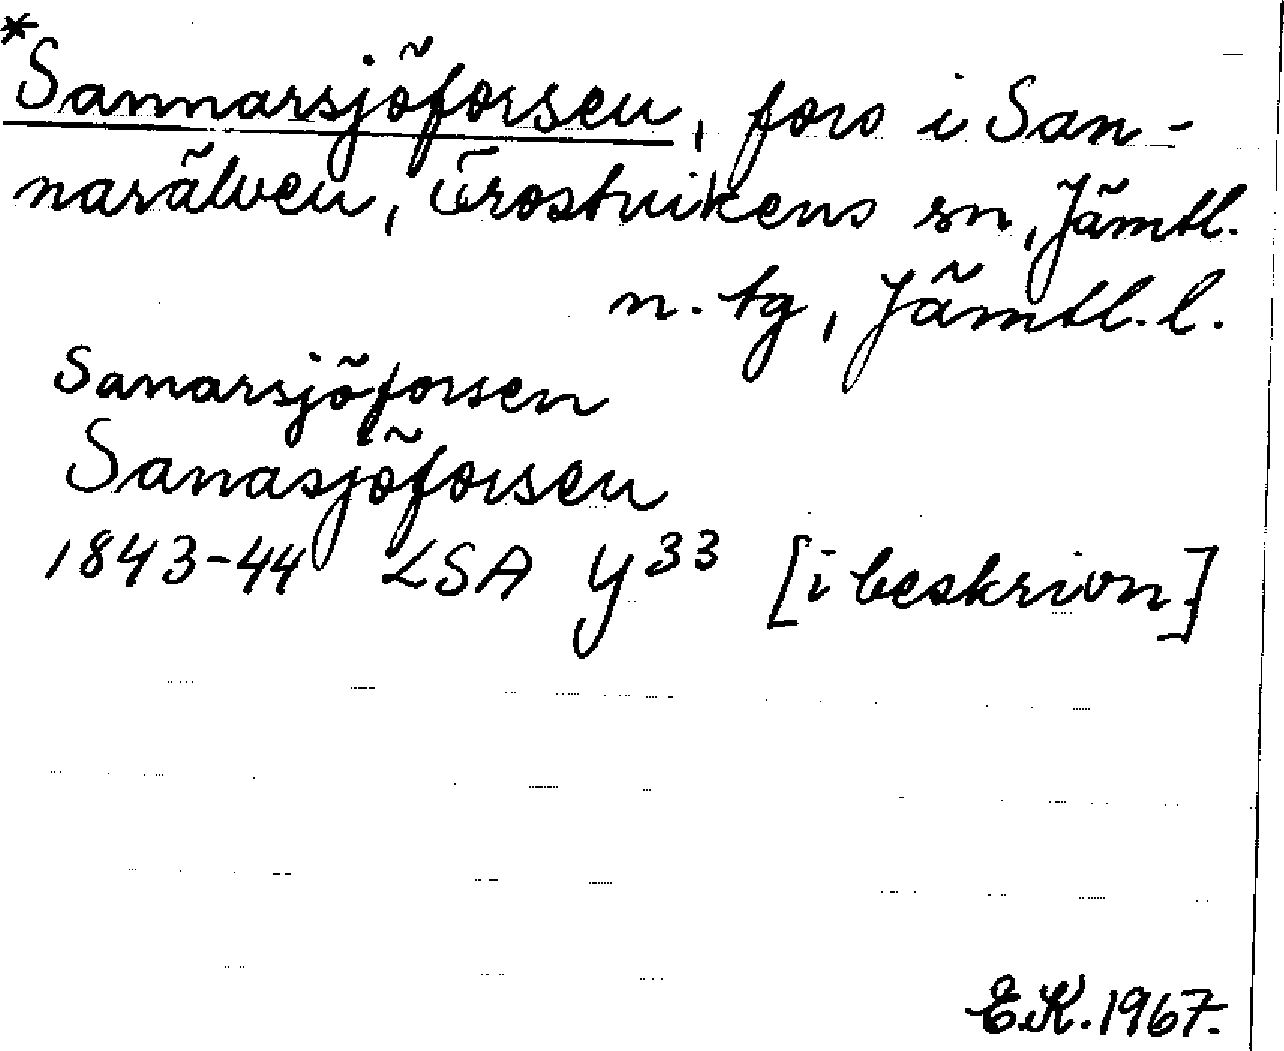 *Sannarsjöforsen, fors i San-
narälven, Örostvikens sn, Jämtl.
n. tg, Jämtl. l.
Sanarsjöforsen
Sanasjöforsen
1843-44 LSA Y33 [i beskrivn.]
E.K. 1967.